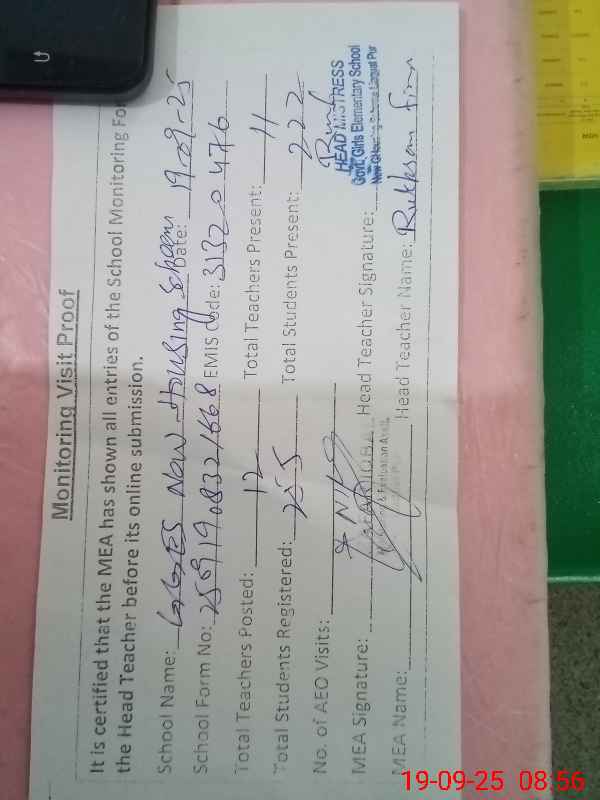 Monitoring Visit Proof
It is certified that the MEA has shown all entries of the School Monitoring For
the Head Teacher before its online submission.
School Name: GGES New Housing Scheem Date: 19-09-25
School Form No: EMIS Code: 31320476
Total Teachers Posted: 12 Total Teachers Present: 11
Total Students Registered: 255 Total Students Present: 222
No. of AEO Visits:
MEA Signature: Head Teacher Signature:
HEAD MISTRESS
Govt. Girls Elementary School
MEA Name: Head Teacher Name:
19-09-25 08:56